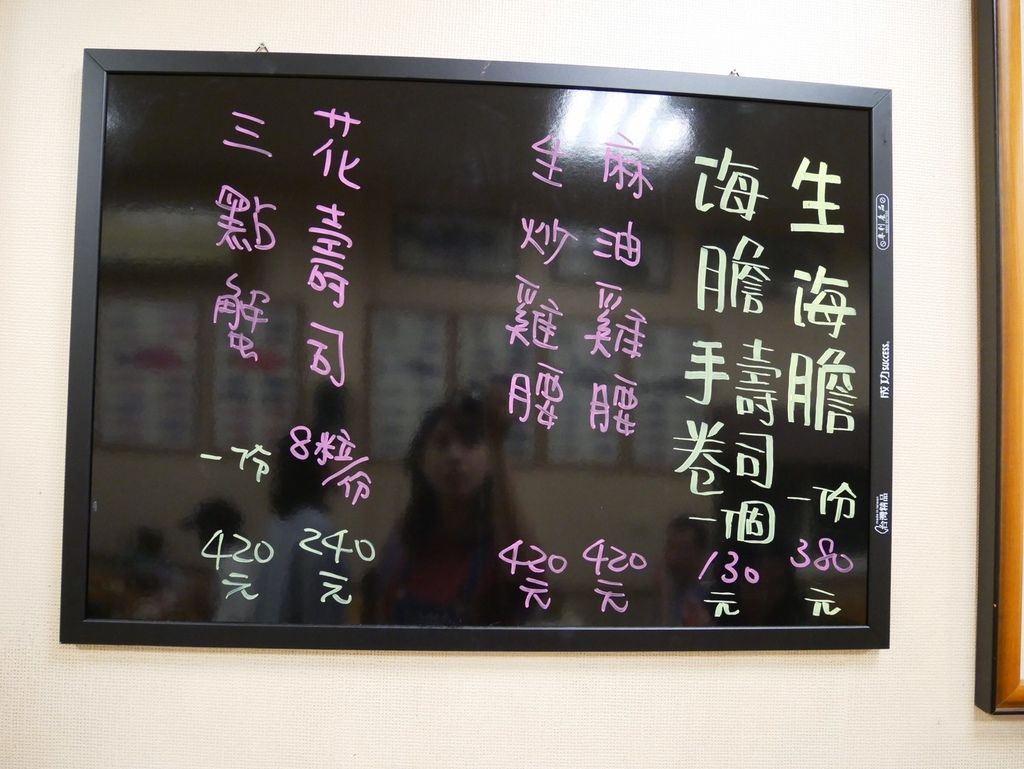 生海膽 一份 380元
海膽手卷 壽司 一個 130元
麻油雞腰 420元
生炒雞腰 420元
花壽司 8粒/份 240元
三點蟹 一份 420元
專利產品
成功 SUCCESS.
台灣精品